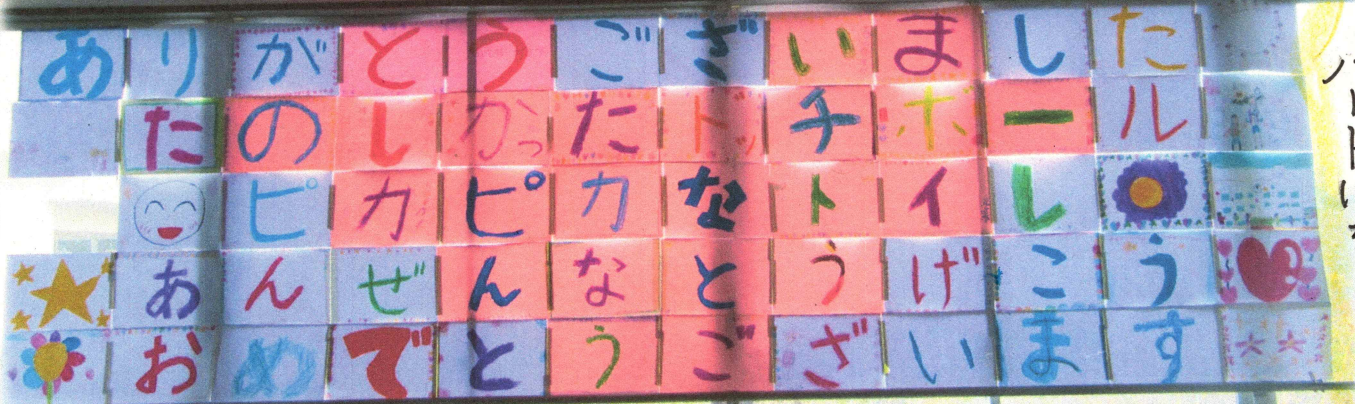 ありがとうございました
たのしかったドッチボール
ピカピカなトイレ
あんぜんなとうげこう
おめでとうございます